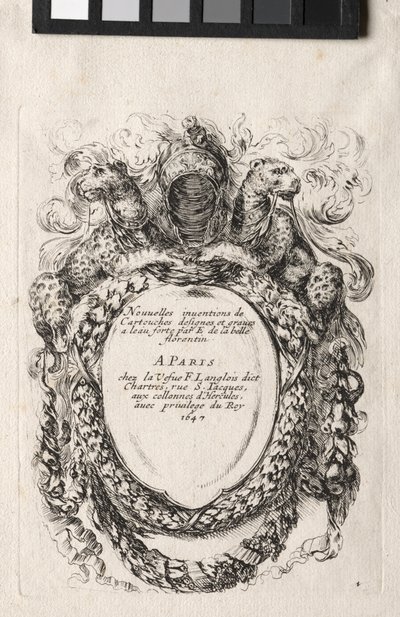 Nouuelles inuentions de
Cartouches designes et grauez
a leau forte par E de la belle
florentin
A PARIS
chez la Vefue F. Langlois dict
Chartres, rue S. Iacques,
aux collonnes d'Hercules,
auec priuilege du Roy
1647
1